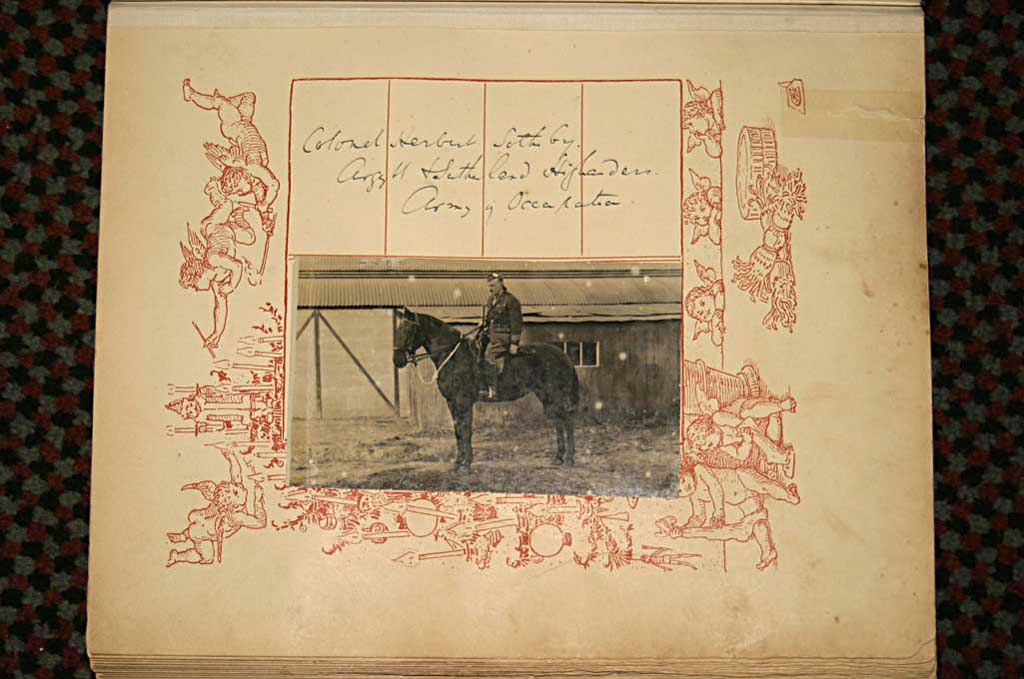 Colonel Herbert Sotheby.
Argyll & Sutherland Highlanders.
Army of Occupation.